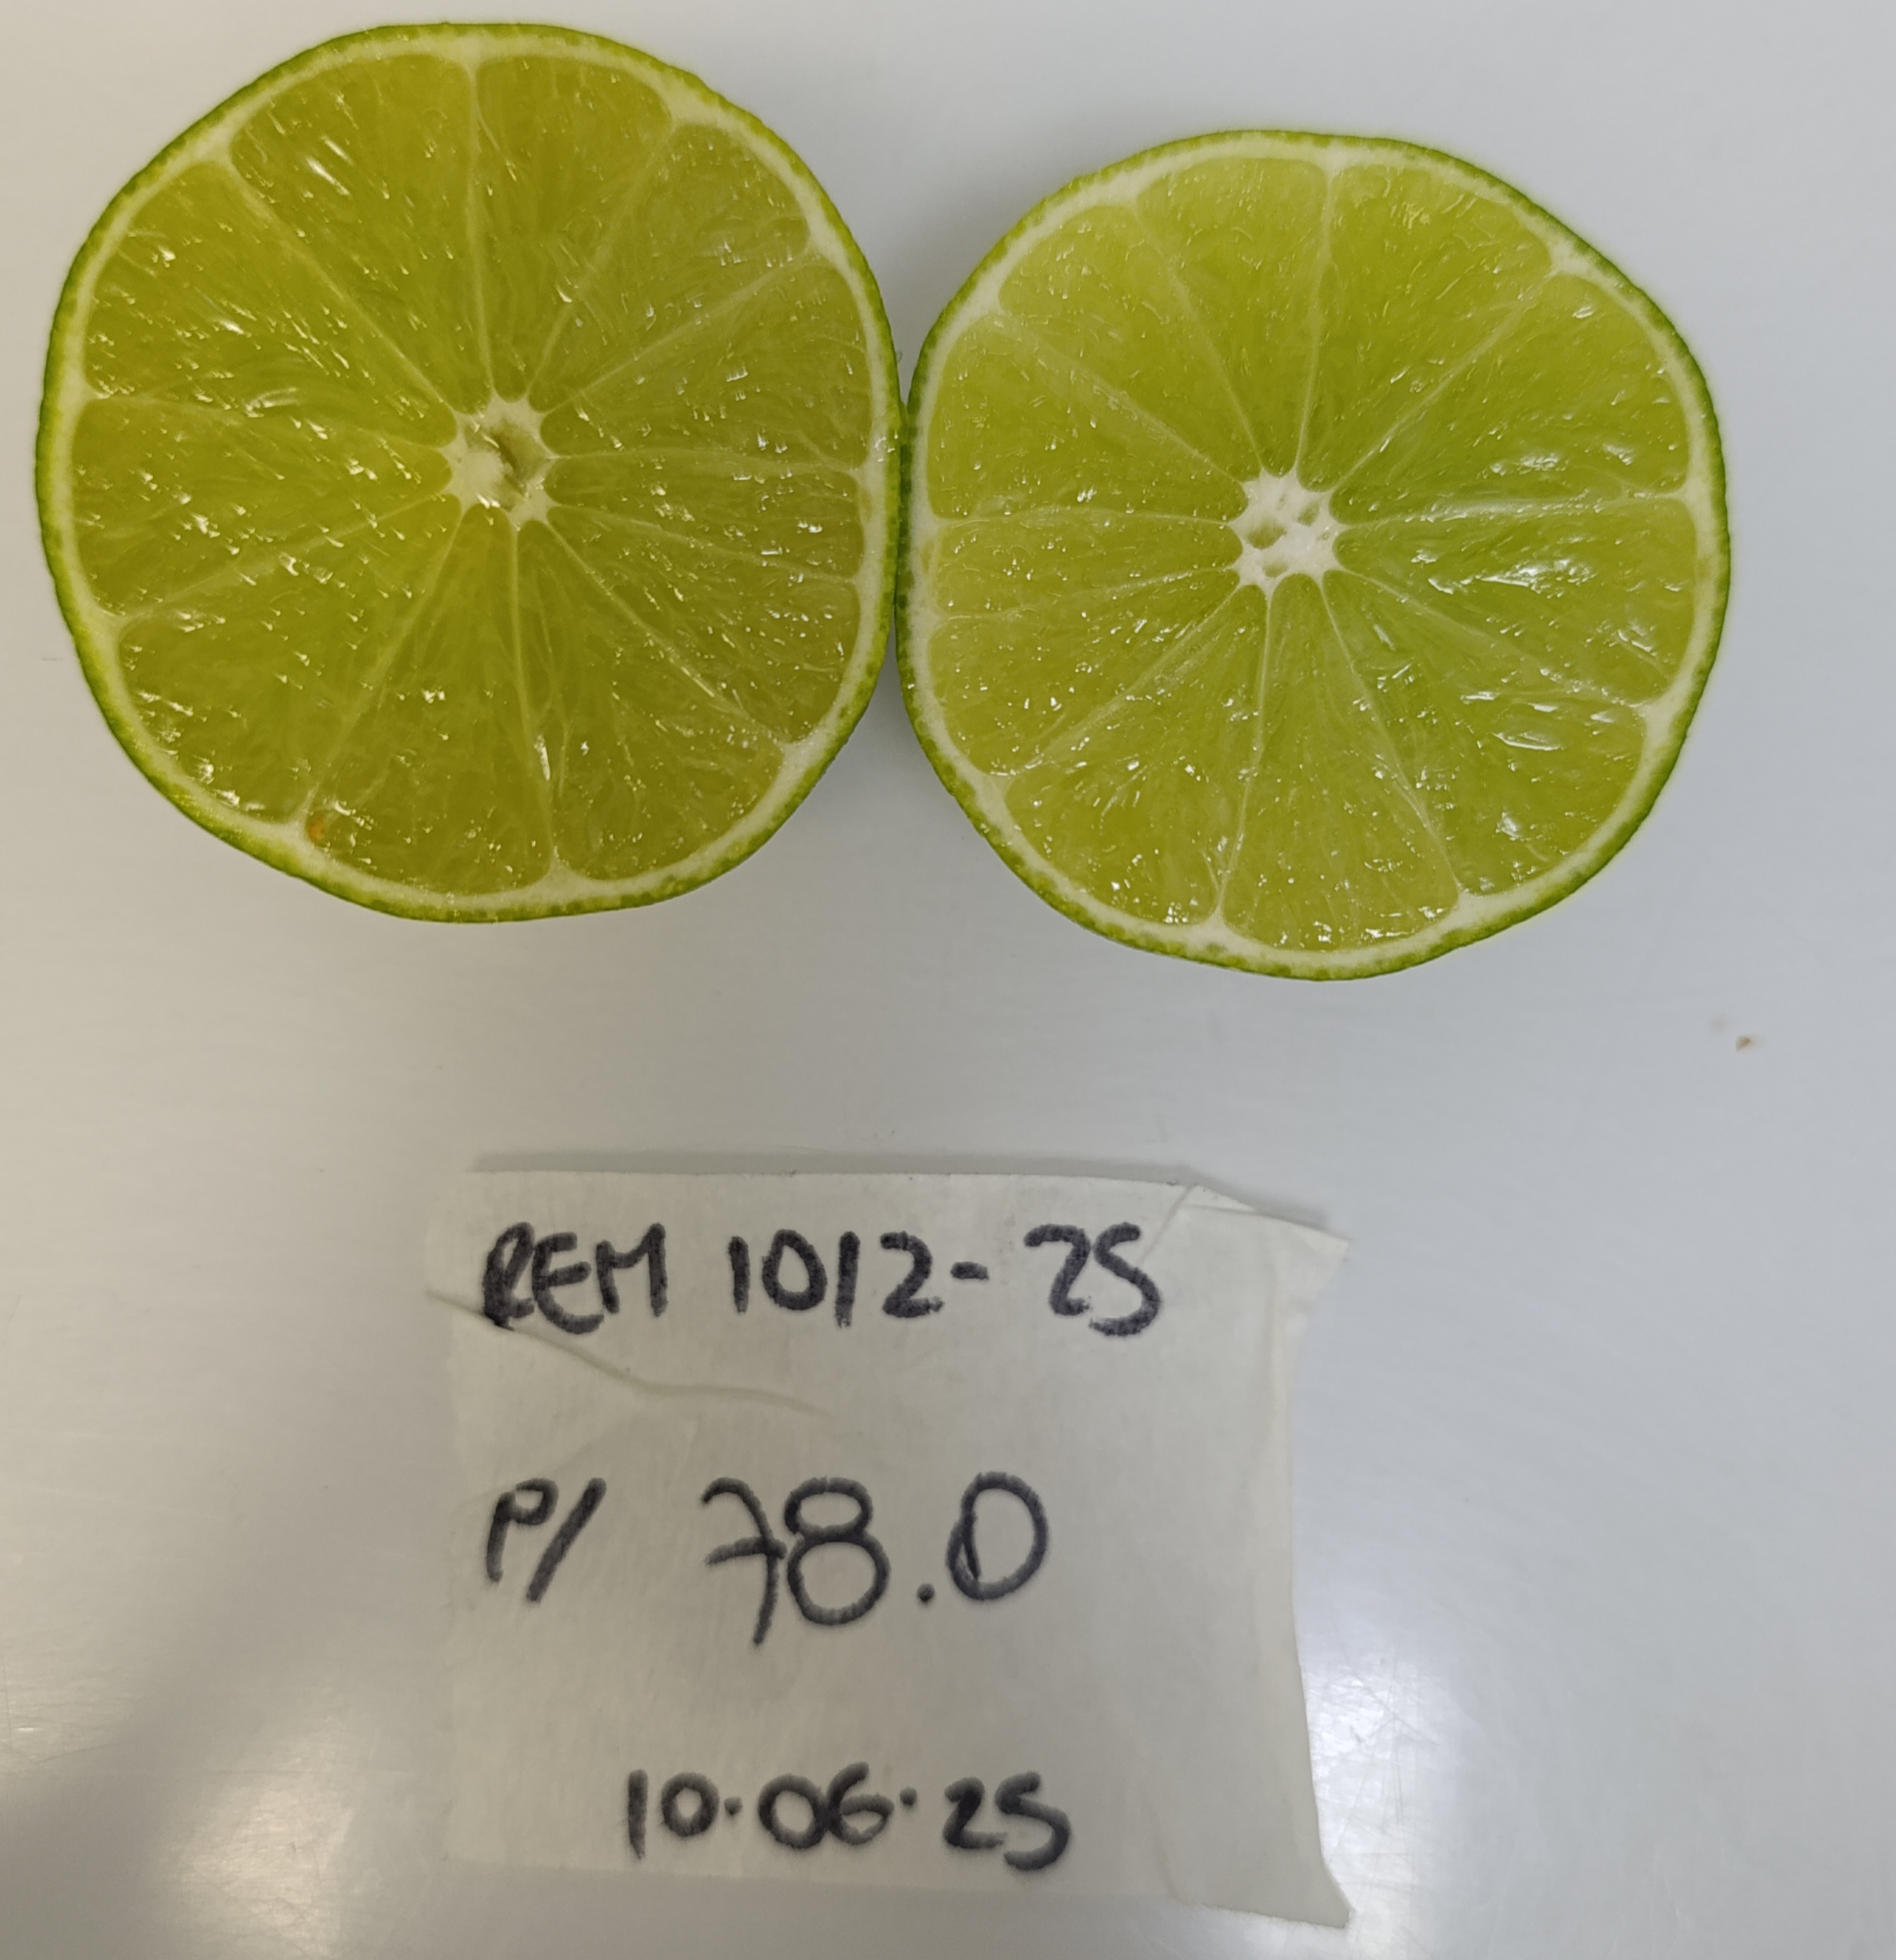 REM 1012-25
P/ 78.0
10.06.25